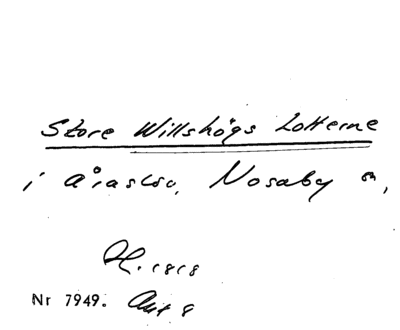 Store Willshögs Lotterne
i Åraslöv, Nosaby sn,
H. 1818
Nr 7949. Akt 8